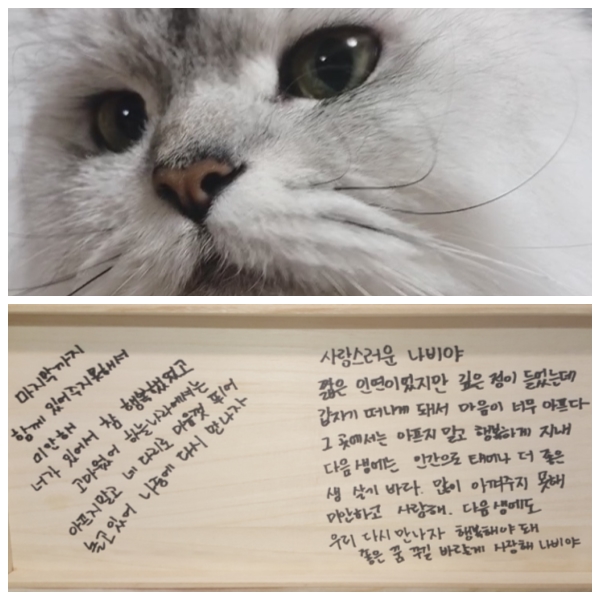 마지막까지
함께 있어주지못해서
미안해
너가 있어서 참 행복했었고
고마웠어 하늘나라에서는
아프지말고 네 다리로 마음껏 뛰어
놀고있어 나중에 다시 만나자
사랑스러운 나비야
짧은 인연이었지만 깊은 정이 들었는데
갑자기 떠나게 돼서 마음이 너무 아프다
그 곳에서는 아프지 말고 행복하게 지내
다음 생에는 인간으로 태어나 더 좋은
생 살기 바라. 많이 아껴주지 못해
미안하고 사랑해. 다음생에도
우리 다시 만나자 행복해야 돼
좋은 꿈 꾸길 바랄게 사랑해 나비야